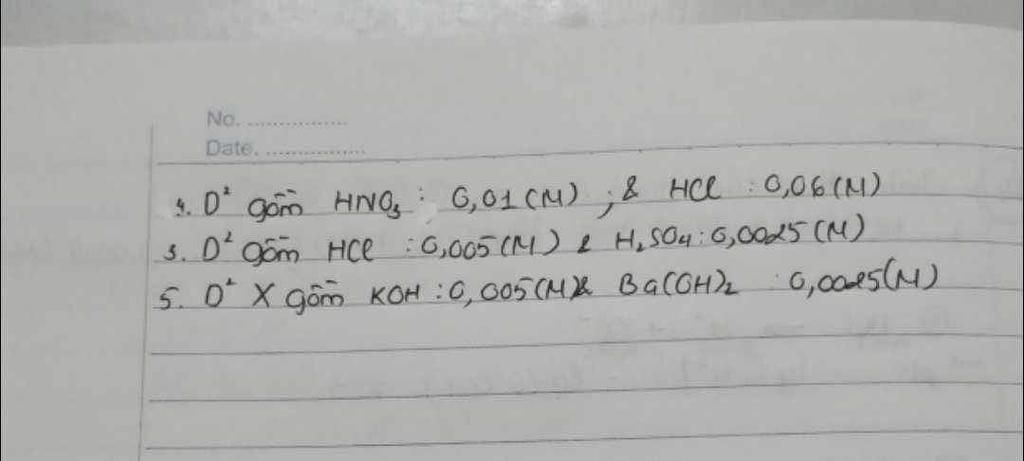 No. ................
Date. ................
4. D² gồm HNO₃ : 0,01 (M) ; & HCl : 0,06 (M)
3. D² gồm HCl : 0,005 (M) & H₂SO₄ : 0,0025 (M)
5. D² X gồm KOH : 0,005 (M) & Ba(OH)₂ : 0,0025 (M)